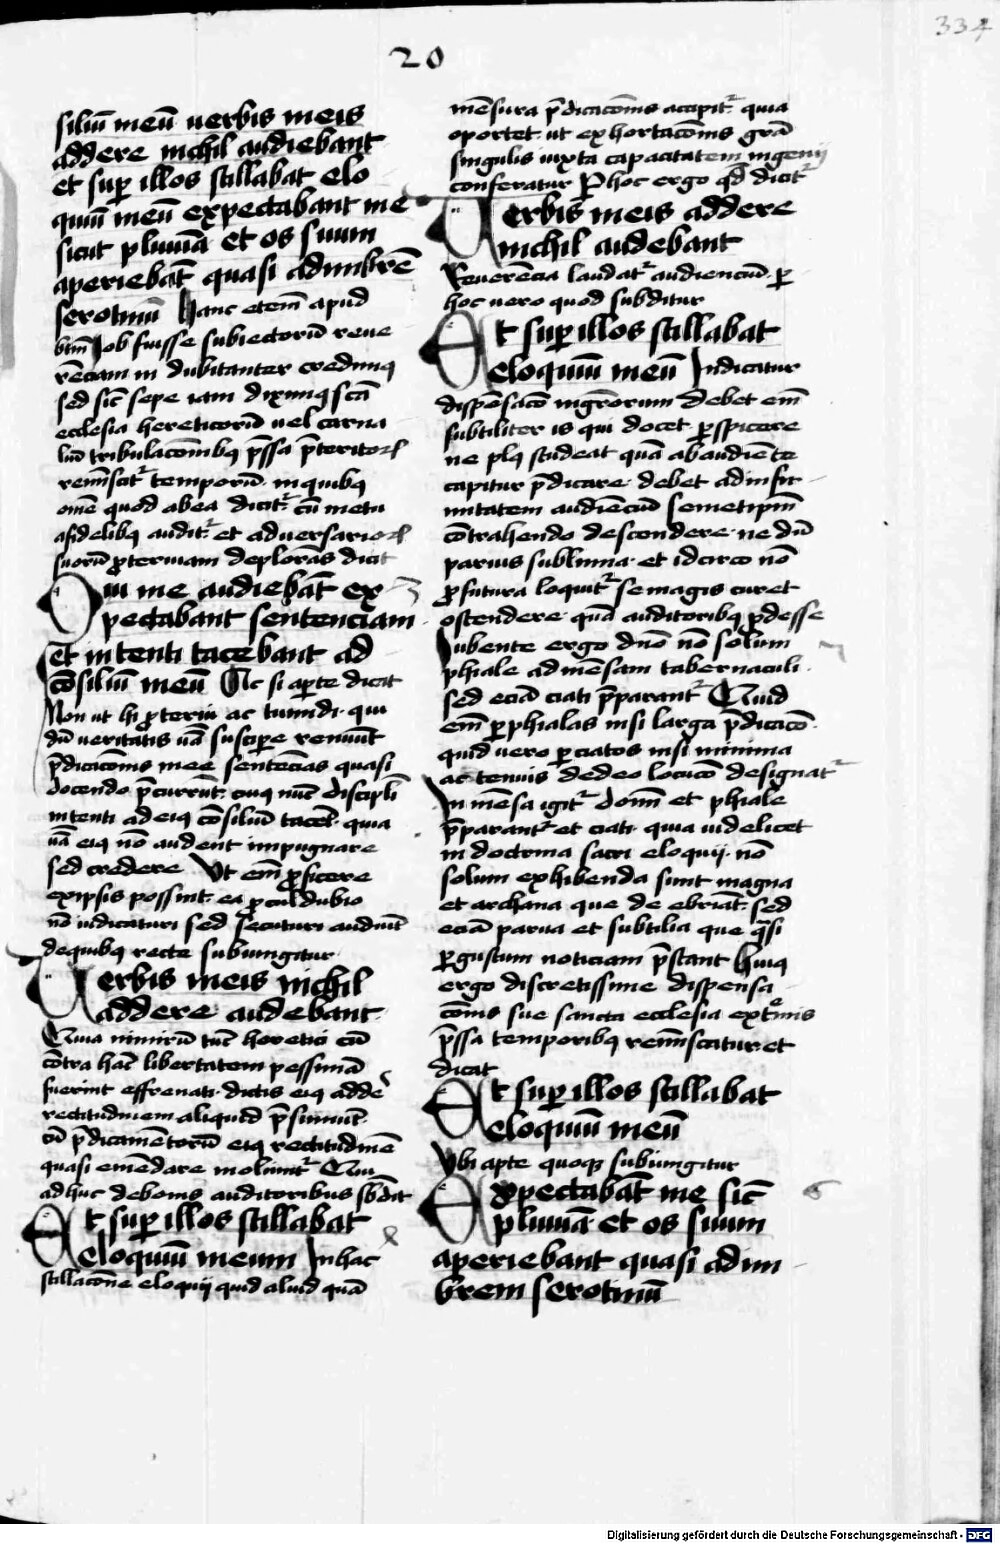 334
20
siliū meū uerbis meis
addere nichil audiebant
et sup illos stillabat elo
quiū meū expectabant me
sicut pluuiā et os suum
aperiebāt quasi ad imbrē
serotinū Hanc etem̄ apud
btm̄ Job fuisse subiectorū reue
rēciam in dubitanter credimꝯ
sed sic̄ sepe iam diximꝯ scā
ecclesia hereticorū uel carna
liū tribulacōnibꝯ p̄ssa p̄teritoꝝ
reminiscit᷑ temporū in quibꝯ
om̄e quod ab ea dicit᷑ cū metu
a fidelibꝯ audit᷑ et aduersarioꝝ
suorū ꝓteruiam deplorās dicit
Qui me audiebāt ex
pectabant sentenciam
et intenti tacebant ad
cōsiliū meū Ac si apte dicat
Non ut hi ꝓterui ac tumidi qui
dū ueritatis uā suscipe renuūt
p̄dicacōnis mee sentēcias quasi
docendo p̄currūt cuiꝯ nūc discipli
intenti ad eiꝯ cōsiliū tacēt quia
uā eiꝯ nō audent impugnare
sed credere Ut em̄ ꝓficere
ex ipsis possint ea ꝓculdubio
nō iudicaturi sed secuturi audiūt
de quibꝯ recte subiungitur
Verbis meis nichil
addere audebant
Quia nimirū tūc heretici cū
cōtra hāc libertatem pessimā
fuerint effrenati dictis eiꝯ adde
rectitudinem aliquid p̄sumūt
cū p̄dicamētorū eiꝯ rectitudinē
quasi emēdare moliūt᷑ Qui
adhuc de bonis auditoribus sb̄dit
Et sup illos stillabat
eloquiū meum In hac
stillacōne eloquij quid aliud quā
mēsura p̄dicacōnis accipit᷑ quia
oportet ut exhortacōnis grā
singulis iuxta capacitatem ingenij
conferatur Per hoc ergo qd̄ dicit᷑
Verbis meis addere
nichil audebant
Reuerēcia laudat᷑ audienciū p
hoc uero quod subditur
Et sup illos stillabat
eloquiū meū Indicatur
dispēsacō magrorum debet em̄
subtiliter is qui docet pspicere
ne plꝯ studeat quā ab audiēte
capitur p̄dicare debet ad infir
mitatem audiēciū semetipm̄
cōtrahendo descendere ne dū
paruis sublimia et idcirco nō
ꝓfutura loquit᷑ se magis curet
ostendere quā auditoribꝯ ꝓdesse
Jubente ergo dn̄o nō solum
phiale ad mēsam tabernaculi
sed eciā ciati p̄parant᷑ Quid
em̄ p phialas nisi larga p̄dicacō
quid uero p ciatos nisi minima
ac tenuis de deo locucō designat᷑
In mēsa igit᷑ domī et phiale
p̄parant᷑ et ciati quia uidelicet
in doctrina sacri eloquij nō
solum exhibenda sunt magna
et archana que de ebriāt sed
eciā parua et subtilia que qsi
p gustum noticiam p̄stant Huiꝯ
ergo discretissime dispensa
cōnis sue sancta ecclesia extremis
p̄ssa temporibꝯ reminiscatur et
dicat
Et sup illos stillabat
eloquiū meū
Ubi apte quoqꝫ subiungitur
Expectabāt me sic̄
pluuiā et os suum
aperiebant quasi ad im
brem serotinū
Digitalisierung gefördert durch die Deutsche Forschungsgemeinschaft - DFG